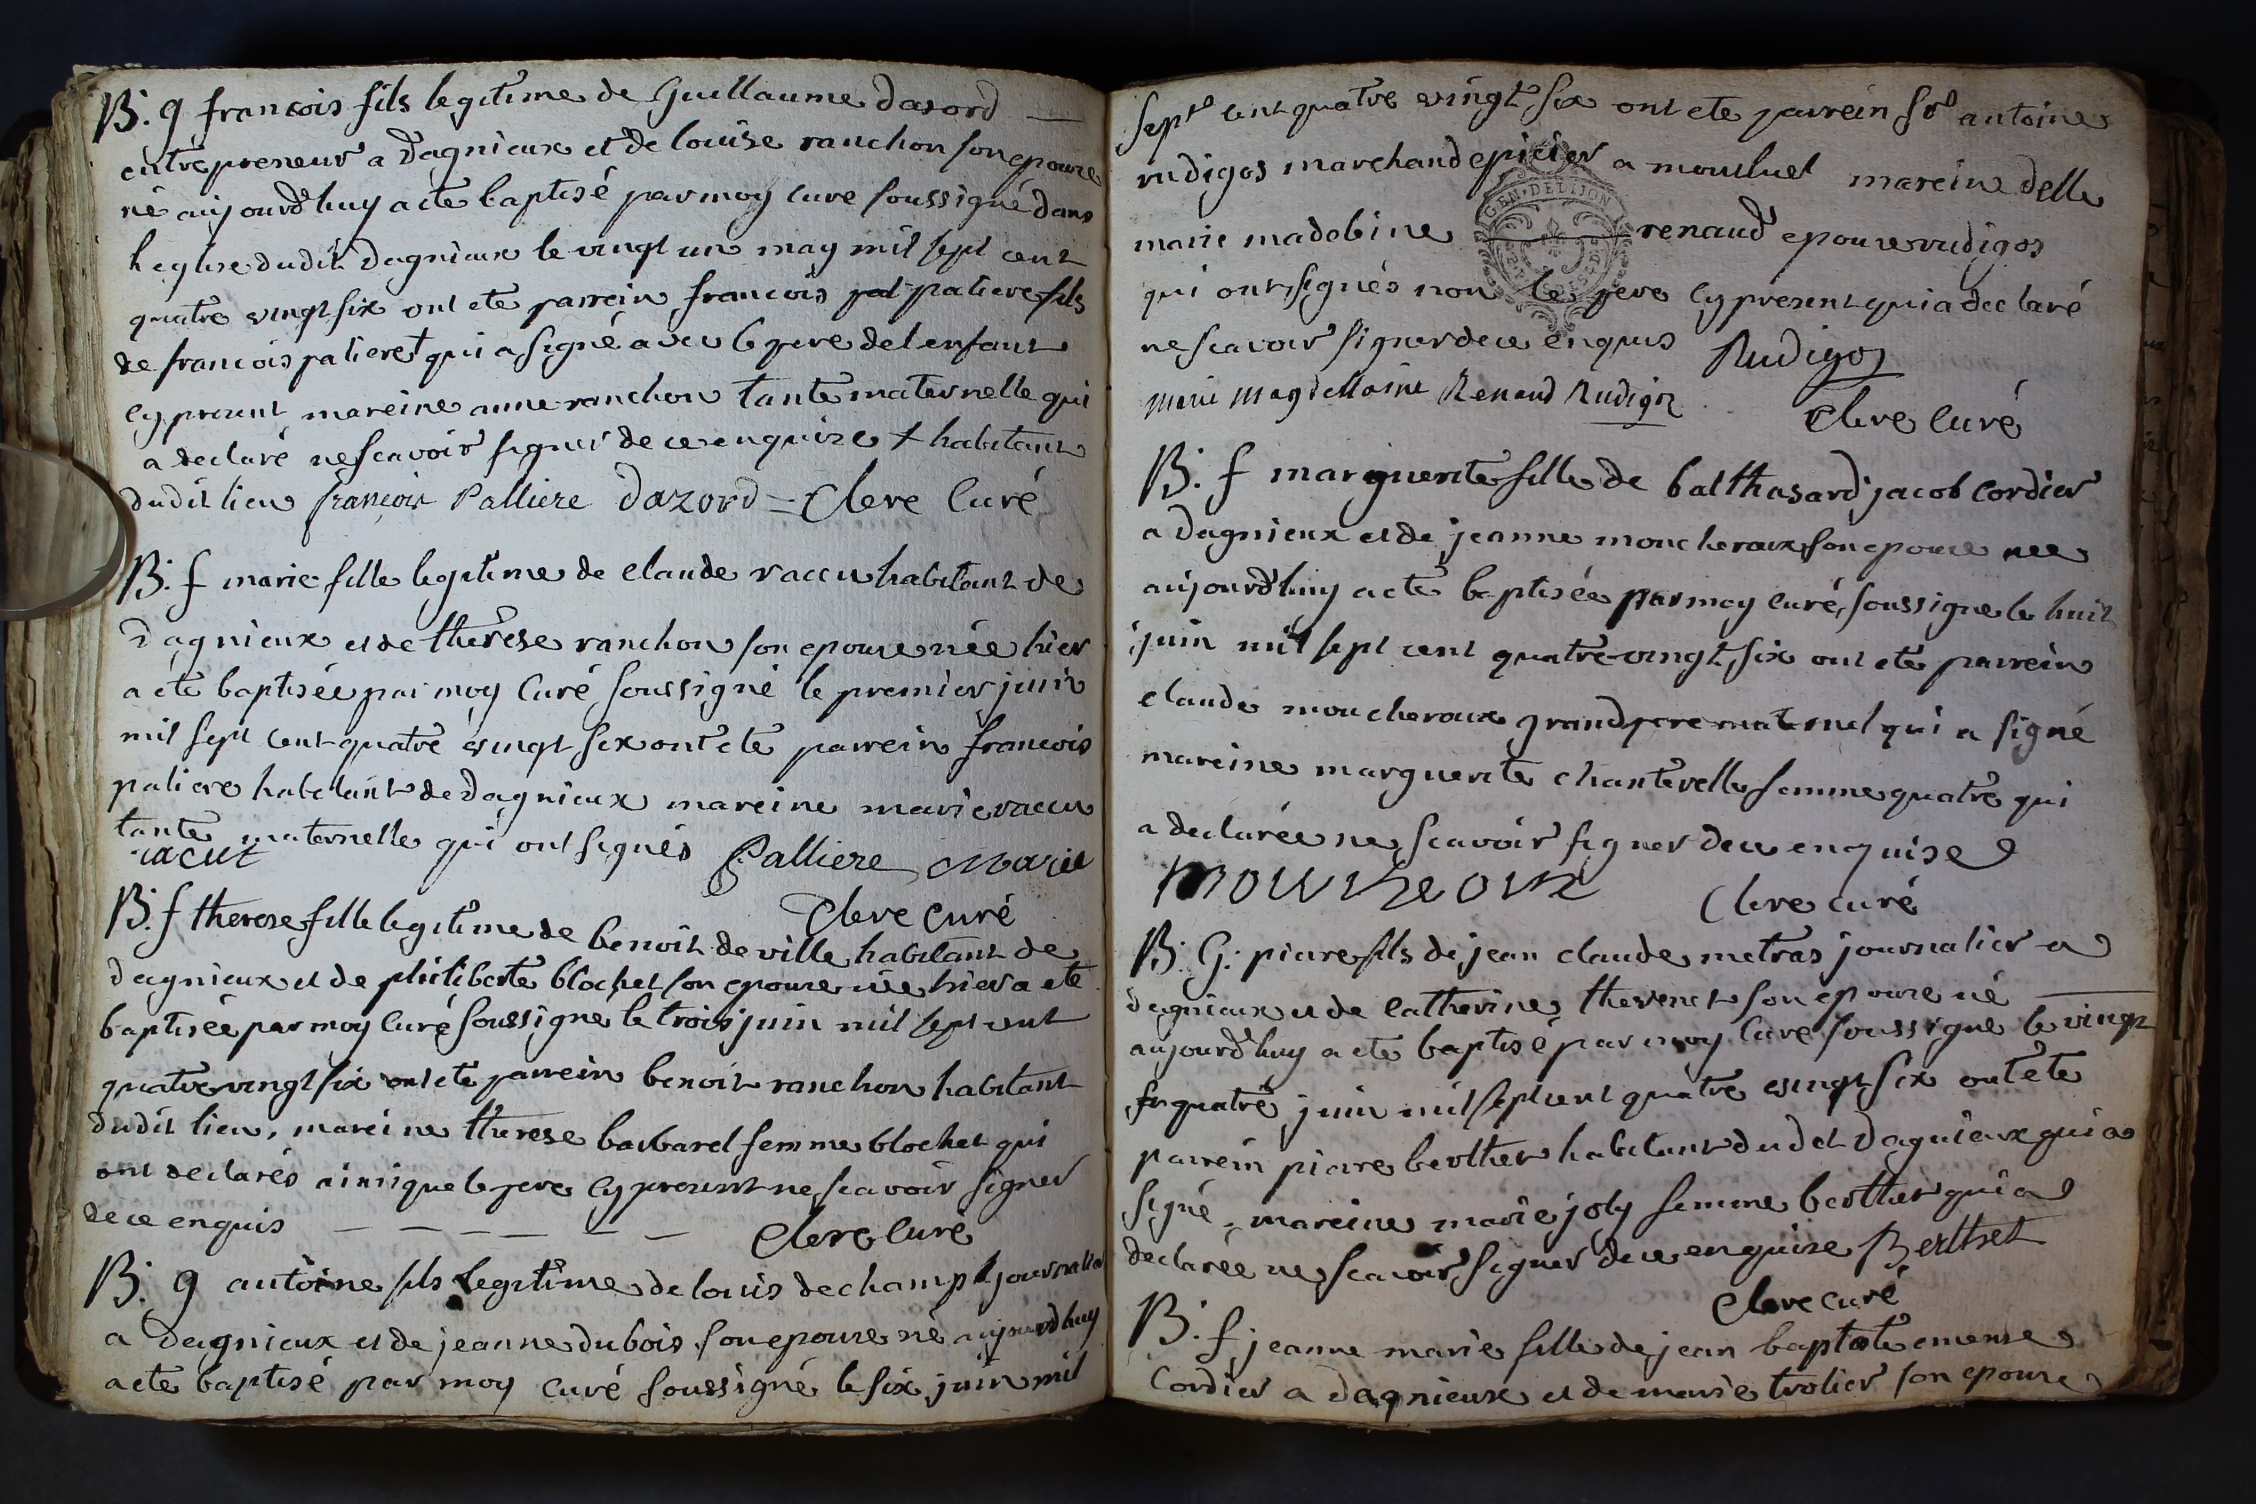 B. g francois fils legitime de Guillaume dasord
entrepreneur a dagnieux et de louise ranchon son epouze
né aujourd'huy a ete baptisé par moy curé soussigné dans
l'eglise dudit dagnieux le vingt un may mil sept cent
quatre vingt six ont ete parrein francois paliere fils
de francois paliere + qui a signé avec le pere de l'enfant
cy present mareine anne ranchon tante maternelle qui
a declaré ne scavoir signer de ce enquize + habitant
dudit lieu françois Palliere dazord = Clere Curé
B. f marie fille legitime de claude vaccu habitant de
dagnieux et de thérèse ranchon son epouze née hier
a ete baptisée par moy Curé soussigné le premier juin
mil sept cent quatre vingt six ont ete parrein francois
paliere habitant de dagnieux mareine marie vaccu
tante maternelle qui ont signés Palliere Marie
vacut
Clere Curé
B. f therese fille legitime de benoit deville habitant de
dagnieux et de philiberte blochet son epouze née hier a ete
baptisée par moy Curé soussigné le trois juin mil sept cent
quatre vingt six ont ete parrein benoit ranchon habitant
dudit lieu, mareine therese barbaret femme blochet qui
ont declarés ainsi que le pere cy present ne scavoir signer
de ce enquis Clere Curé
B. g antoine fils legitime de louis dechamp journalier
a dagnieux et de jeanne dubois son epouze né aujourd'huy
a ete baptisé par moy curé soussigné le six juin mil
sept cent quatre vingt six ont ete parrein Sr antoine
rudigos marchand epicier a mouluel mareine delle
marie madeleine renaud epouze rudigos
qui ont signés non le pere cy present qui a declaré
ne scavoir signer de ce enquis Rudigoz
marie magdellaine Renaud Rudigoz Clere Curé
B. f marguerite fille de balthasard jacob cordier
a dagnieux et de jeanne moucheroux son epouze née
aujourd'huy a ete baptisée par moy curé soussigné le huit
juin mil sept cent quatre vingt six ont ete parrein
claude moucheroux grand pere maternel qui a signé
mareine marguerite chanterelle femme quatre qui
a declarée ne scavoir signer de ce enquise
Clere curé
B. G. piere fils de jean claude metras journalier a
dagnieux et de catherine thevenet son epouze né
aujourd'huy a ete baptisé par moy Curé soussigné le vingt
quatre juin mil sept cent quatre vingt six ont ete
parrein piere berthet habitant dudit dagnieux qui a
signé, mareine marie joly femme berthet qui a
declarée ne scavoir signer de ce enquize Berthet
Clere curé
B. f jeanne marie fille de jean baptiste
Cordier a dagnieux et de marie trolier son epouze